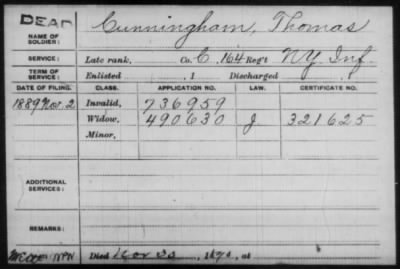 DEAD
NAME OF SOLDIER: Cunningham, Thomas
SERVICE: Late rank, Co. C, 164 Reg't NY Inf.
TERM OF SERVICE: Enlisted , 1 Discharged , 1
DATE OF FILING. CLASS. APPLICATION NO. LAW. CERTIFICATE NO.
1889 Nov. 2 Invalid, 736959
Widow, 490630 J 321625
Minor,
ADDITIONAL SERVICES:
REMARKS:
Died Nov 30, 1870, at